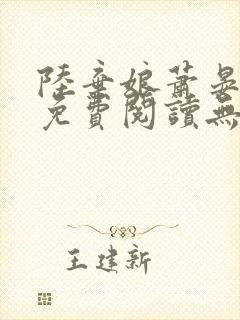 陸棄娘蕭晏
免費閱讀無
王建新